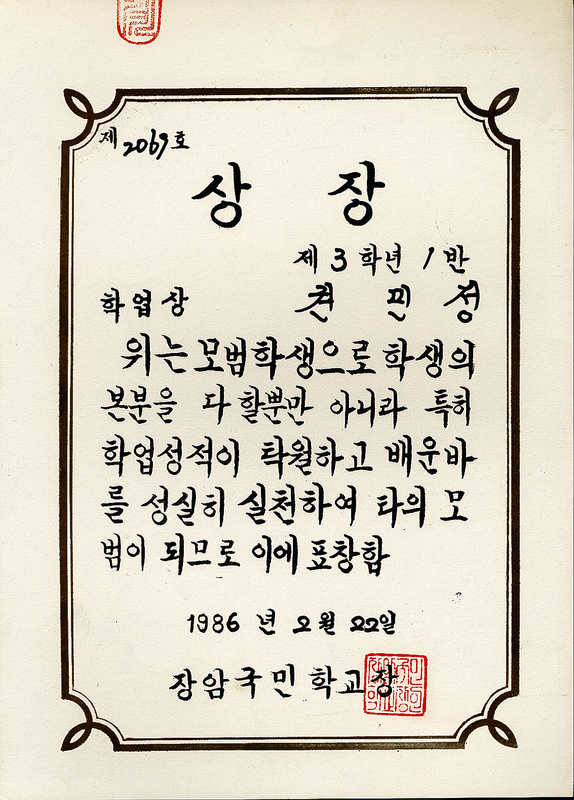 제 2069 호
상 장
제 3 학년 1 반
학업상 천 민 성
위는 모범학생으로 학생의
본분을 다 할뿐만 아니라 특히
학업성적이 탁월하고 배운바
를 성실히 실천하여 타의 모
범이 되므로 이에 표창함
1986 년 2 월 22일
장암국민학교장